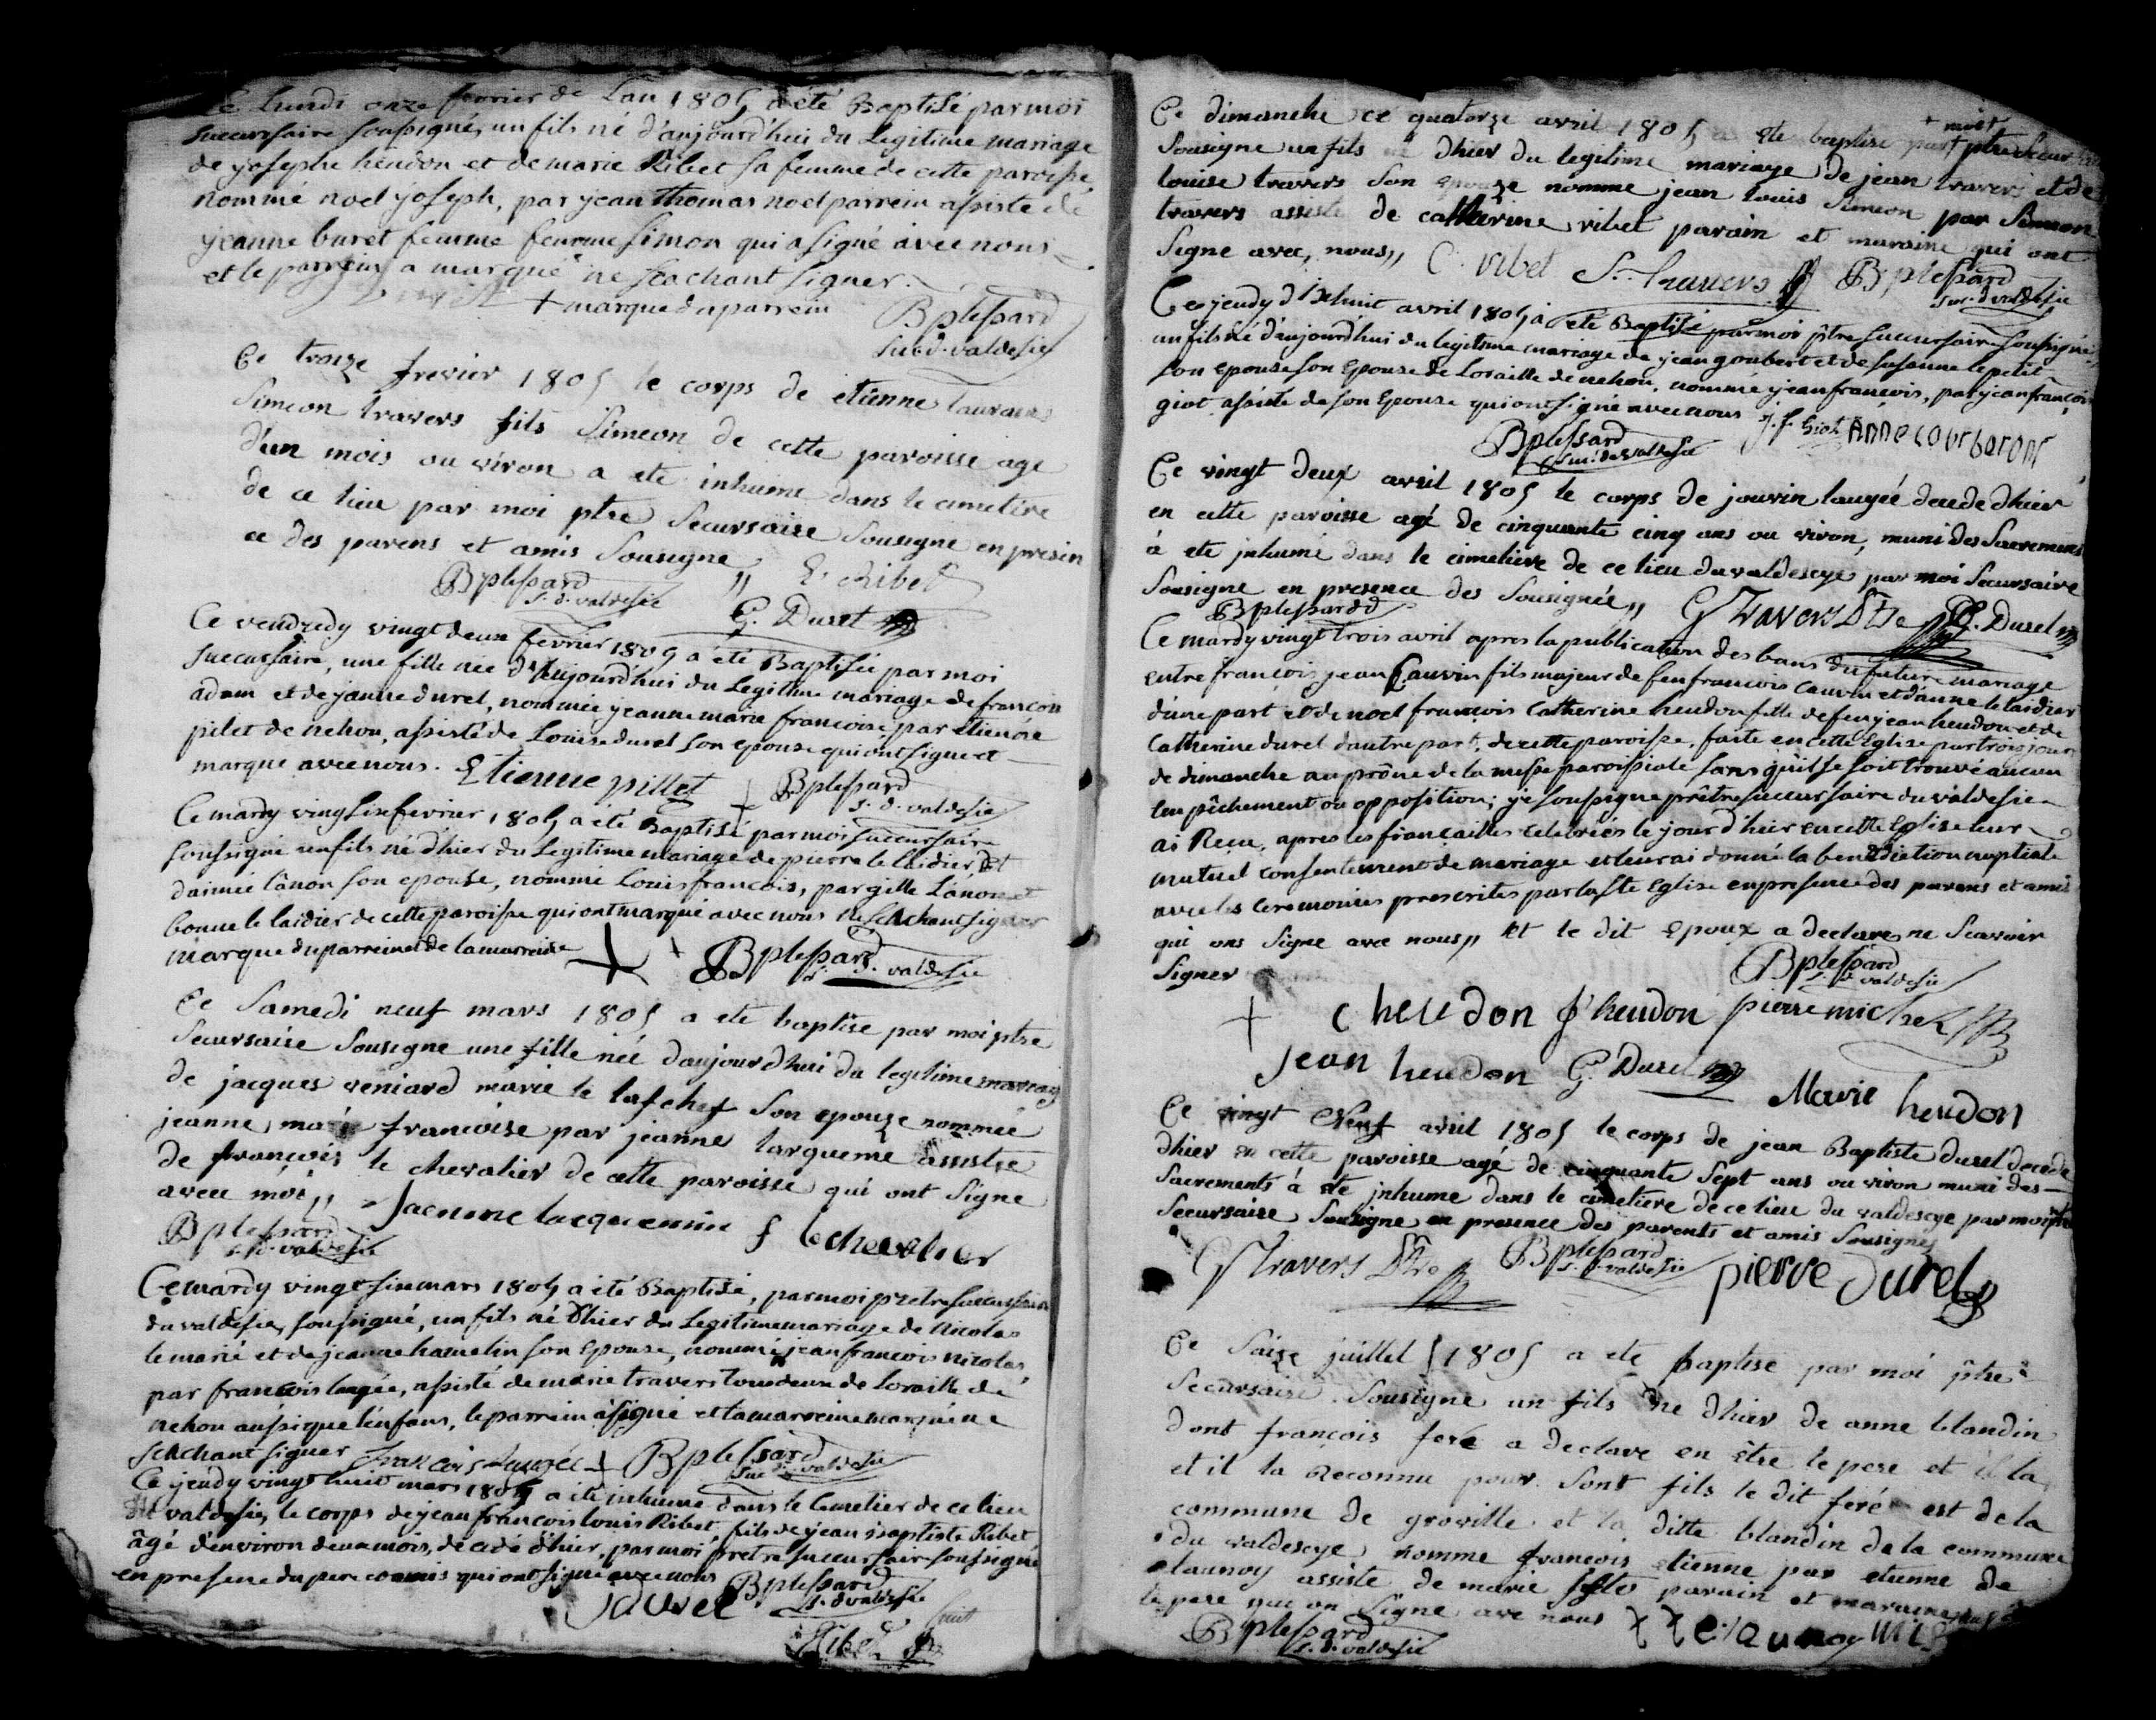 Ce Lundi onze fevrier de Lan 1805 a été Baptisé par moi
succursaire soussigné, un fils né d'aujourd'huy du Legitime mariage
de yosephe heudon et de marie Ribet sa femme de cette paroisse,
nommé noel yoseph, par yean thomas noel parrein assisté de
yeanne buret femme femme simon qui a signé avec nous
et le parrein a marqué ne scachant signer.
+ marque du parrein Bplessard
suc d. valdesie
Ce traize frevier 1805 le corps de etienne
Simeon travers fils Simeon de cette paroisse age
d'un mois ou viron a ete inhume dans le cimetire
de ce lieu par moi ptre Secursaire Sousigne en presin
ce des parens et amis Sousigne,, E. Ribet
Bplessard
s. d. valdesie G. Duret
Ce vendredy vingt deux fevrier 1805 a été Baptisée par moi
succursaire, une fille née d'aujourd'hui du Legitime mariage de françois
adam et de yanne durel, nommée yeanne marie francoise, par etienne
pilet de nehou, assisté de Louise durel son epouse qui ont signe et
marque avec nous. Etienne pillet + Bplessard
s. d. valdesie
Ce mardy vingt six fevrier 1805 a été Baptisé par moi succursaire
soussigné un fils né d'hier du Legitime mariage de pierre le laidier, et
d'aimée Lânon son epouse, nommé Louis francois, par gille Lânon et
bonne le laidier de cette paroisse qui ont marqué avec nous ne scachant signer
marque du parrein et de la marreine + + Bplessard
s. d. valdesie
Ce Samedi neuf mars 1805 a ete baptise par moi ptre
Secursaire Sousigne une fille neé daujourdhui du legitime mariag
de jacques veniard marie le lafchef Son epouze nommeé
jeanne, marie francoise par jeanne larqueme assistré
de francois le chevalier de cette paroisse qui ont Signe
avec moi,, Jaenne lacquemin f lechevelier
Bplessard
s. d. valdesie
Ce mardy vingt six mars 1805 a été Baptisé, par moi prêtre succursaire
du valdesie, soussigné, un fils né d'hier du Legitime mariage de Nicolas
le marié et de jeanne hamelin son Epouse, nommé jean francois nicolas,
par francois laugée, assisté de marie travers tous deux de Loraille de
nehou aussi que l'enfans, le parrein a signé et la marreine marqué ne
scachant signer francois Laugée + Bplessard
suc d. valdesie
Ce jeudy vingt huit mars 1805 a été inhumé dans le Cimetier de ce lieu
du valdesie, le corps de jean francois Louis Ribet, fils de jean Baptiste Ribet
âgé d'environ deux mois, décédé d'hier, par moi prêtre succursaire soussigné
en presence du pere et amis qui ont signé avec nous Bplessard
s. d valdesie
J durel
Ribet
Ce dimanche ce quatorze avril 1805 a ete baptise par + moi + ptre Secur
Sousigne un fils né dhier du legitime mariage de jean travers et de
louise travers Son epouze nomme jean louis Simeon par Simeon
travers assiste de catherine ribet parain et maraine qui ont
Signe avec, nous,, C. ribet S. travers Bplessard
suc. d valdesie
Ce jeudy dixhuit avril 1805 a été Baptisé par moi ptre succursaire soussigné
un fils né d'aujourd'hui du legitime mariage de yean goubert et de susanne le petit
son epouse son Epouse de Loraille de nehou, nommé yean françois, par yean françois
giot, assisté de son Epouse qui ont signé avec nous J. f. Giot Anne courberont
Bplessard
suc. de valdesie
Ce vingt deux avril 1805 le corps de jouvin laugeé decede dhier
en cette paroisse agé de cinquante cinq ans ou viron, muni des Sacremens
à ete jnhumé dans le cimetiere de ce lieu du valdescye, par moi Secursaire
Sousigne en presence des Sousignée,, G Travers Ptre G. Durel
Bplessard
Ce mardy vingt trois avril apres la publication des bans du future mariage
entre françois jean Cauvin fils majeur de feu francois Cauvin et d'anne le laidier
d'une part et de noel francois Catherine heudon fille de feu jean heudon et de
Catherine durel dautre part, de cette paroisse, faite en cette Eglise par trois jours
de dimanche au prône de la messe paroissiale sans qu'il se soit trouvé aucun
empêchement ou opposition; je soussigne prêtre succursaire du valdesie
ai Reçu, apres les fiançailles celebrées le jour d'hier en cette Eglise leur
mutuel consentement de mariage et leur ai donné la benediction nuptiale
avec les ceremonies prescrites par la ste Eglise en presence des parens et amis
qui ons Signe avec nous,, et le dit epoux a declare, ne Scavoir
Signer Bplessard
s. d valdesie
+ c heudon f heudon pierre michel
Jean heudon G. Durel Marie heudon
Ce vingt Neuf avril 1805 le corps de jean Baptiste durel decede
dhier en cette paroisse agé de cinquante Sept ans ou viron muni des
Sacrements à ete jnhume dans le cimetiere de ce lieu du valdescye par moi ptre
Secursaire Sousigne en presence des parents et amis Sousignes
G Travers Ptre Bplessard
s. d. valdesie pierre durel
Ce Saize juillet 1805 a ete baptise par moi ptre
Secursaire Sousigne un fils ne dhier de anne blandin
dont françois feré a declare en être le pere et il la
et il la Reconnu pour Sont fils le dit feré est de la
commune de groville et la ditte blandin de la commune
du valdescye, nomme francois etienne par etienne de
launoy assiste de marie parain et maraine
le pere qui on Signe avec nous
Bplessard
s. d. valdesie